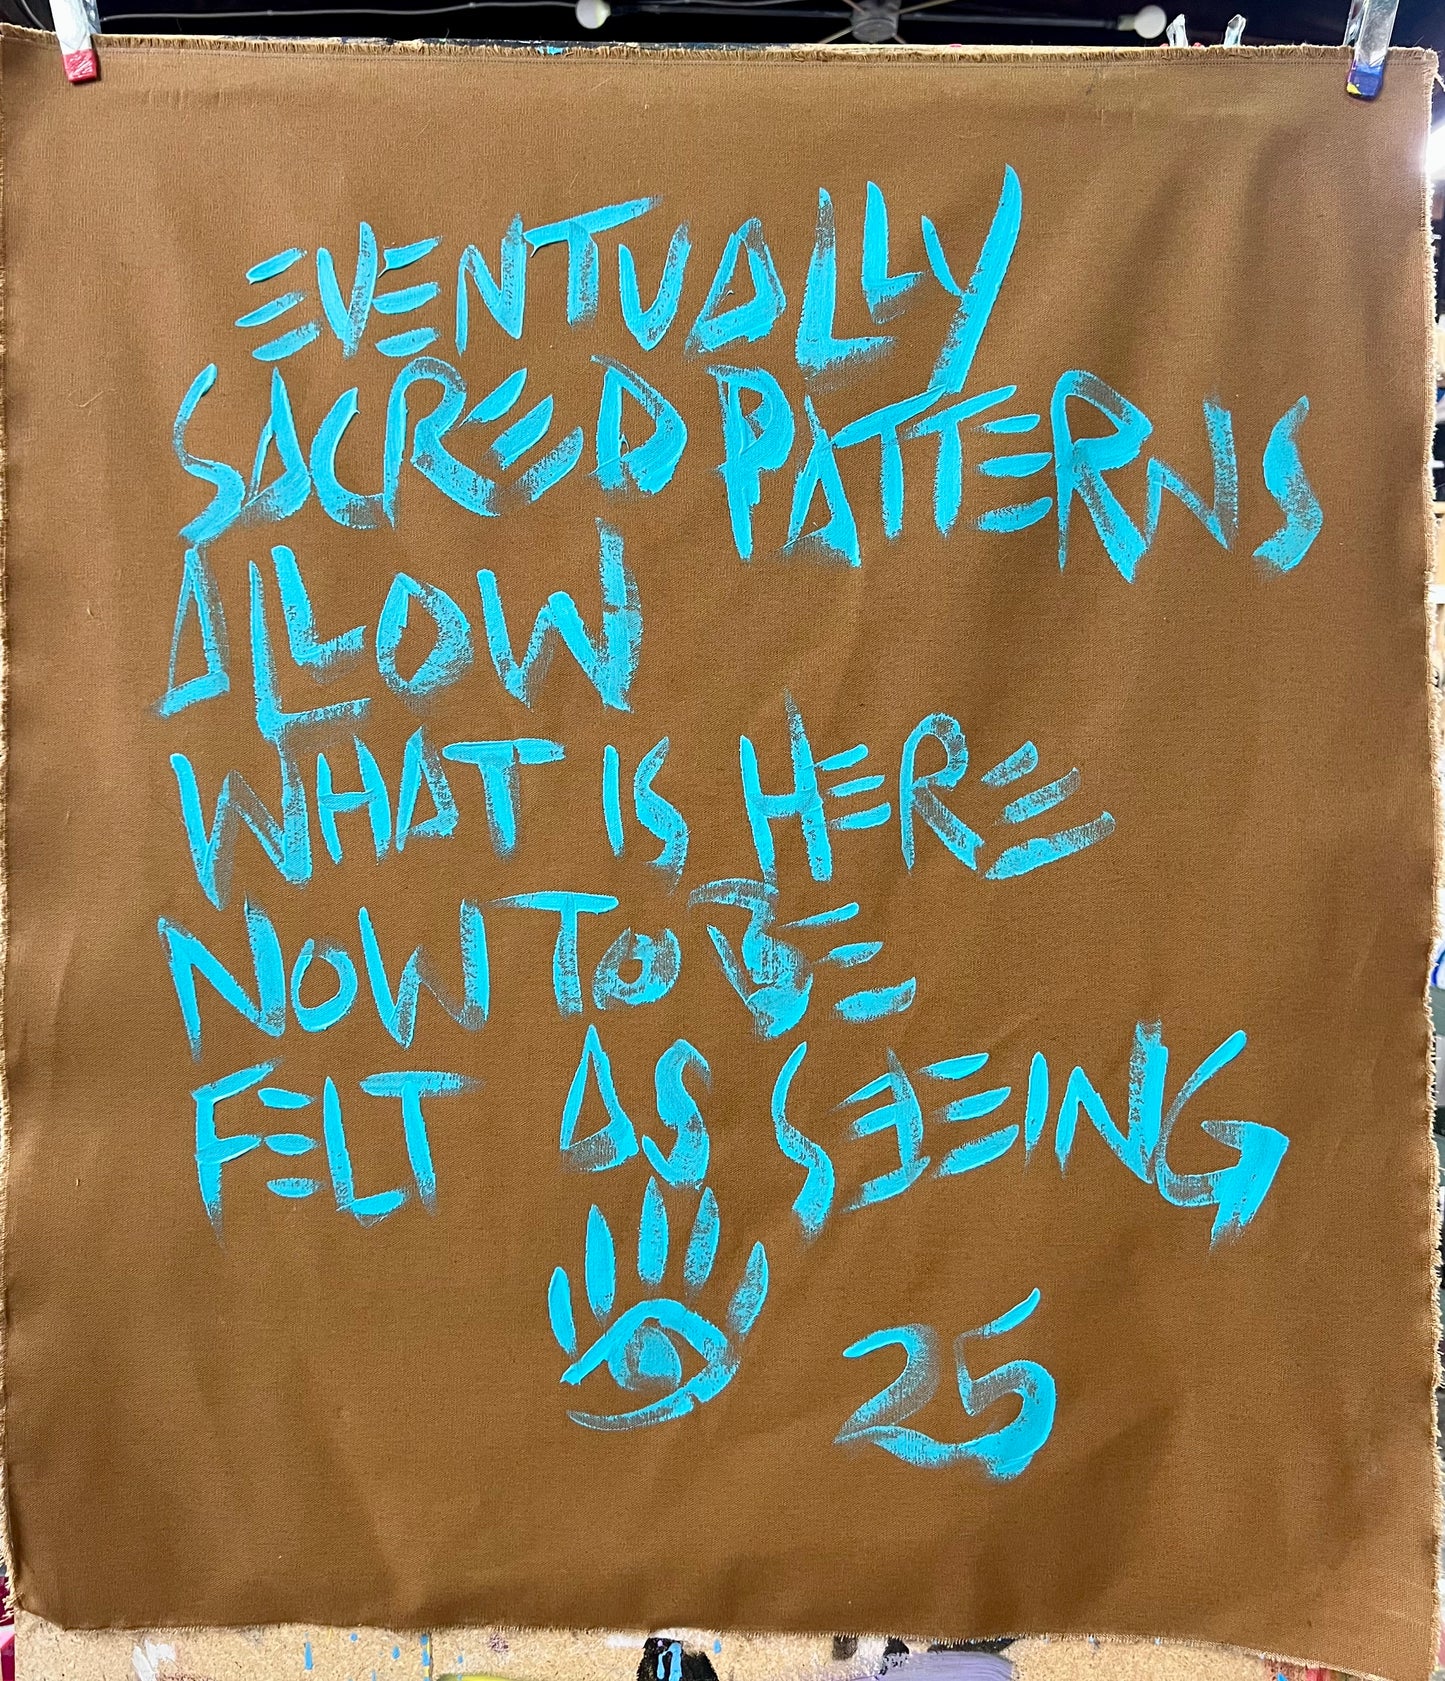 EVENTUALLY
SACRED PATTERNS
ALLOW
WHAT IS HERE
NOW TO BE
FELT AS SEEING
25